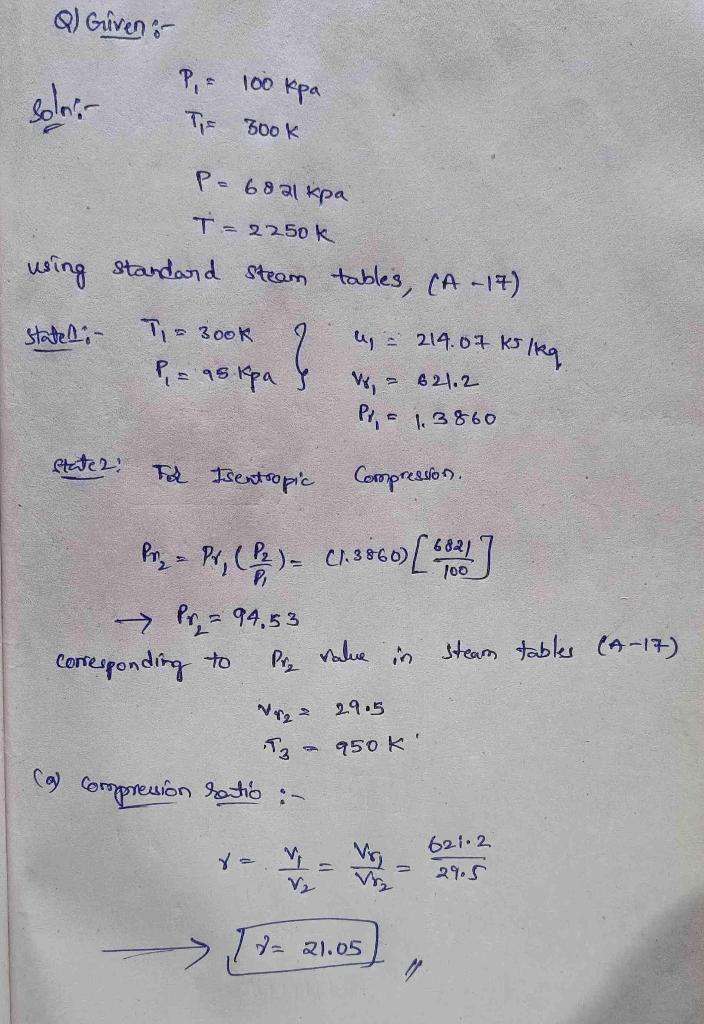 Q) Given :-
P₁ = 100 Kpa
Soln:-
T₁= 300 K
P = 6821 Kpa
T = 2250 K
using standard steam tables, (A-17)
State1:- T₁ = 300K } u₁ = 214.07 KJ/kg
P₁ = 95 Kpa Vr₁ = 621.2
Pr₁ = 1.3860
State2: For Isentropic Compression.
Pr₂ = Pr₁ (P₂/P₁) = (1.3860) [6821/100]
→ Pr₂ = 94.53
corresponding to Pr₂ value in steam tables (A-17)
Vr₂ = 29.5
T₃ = 950 K
(a) Compression ratio :-
r = V₁/V₂ = Vr₁/Vr₂ = 621.2/29.5
→ r = 21.05 //